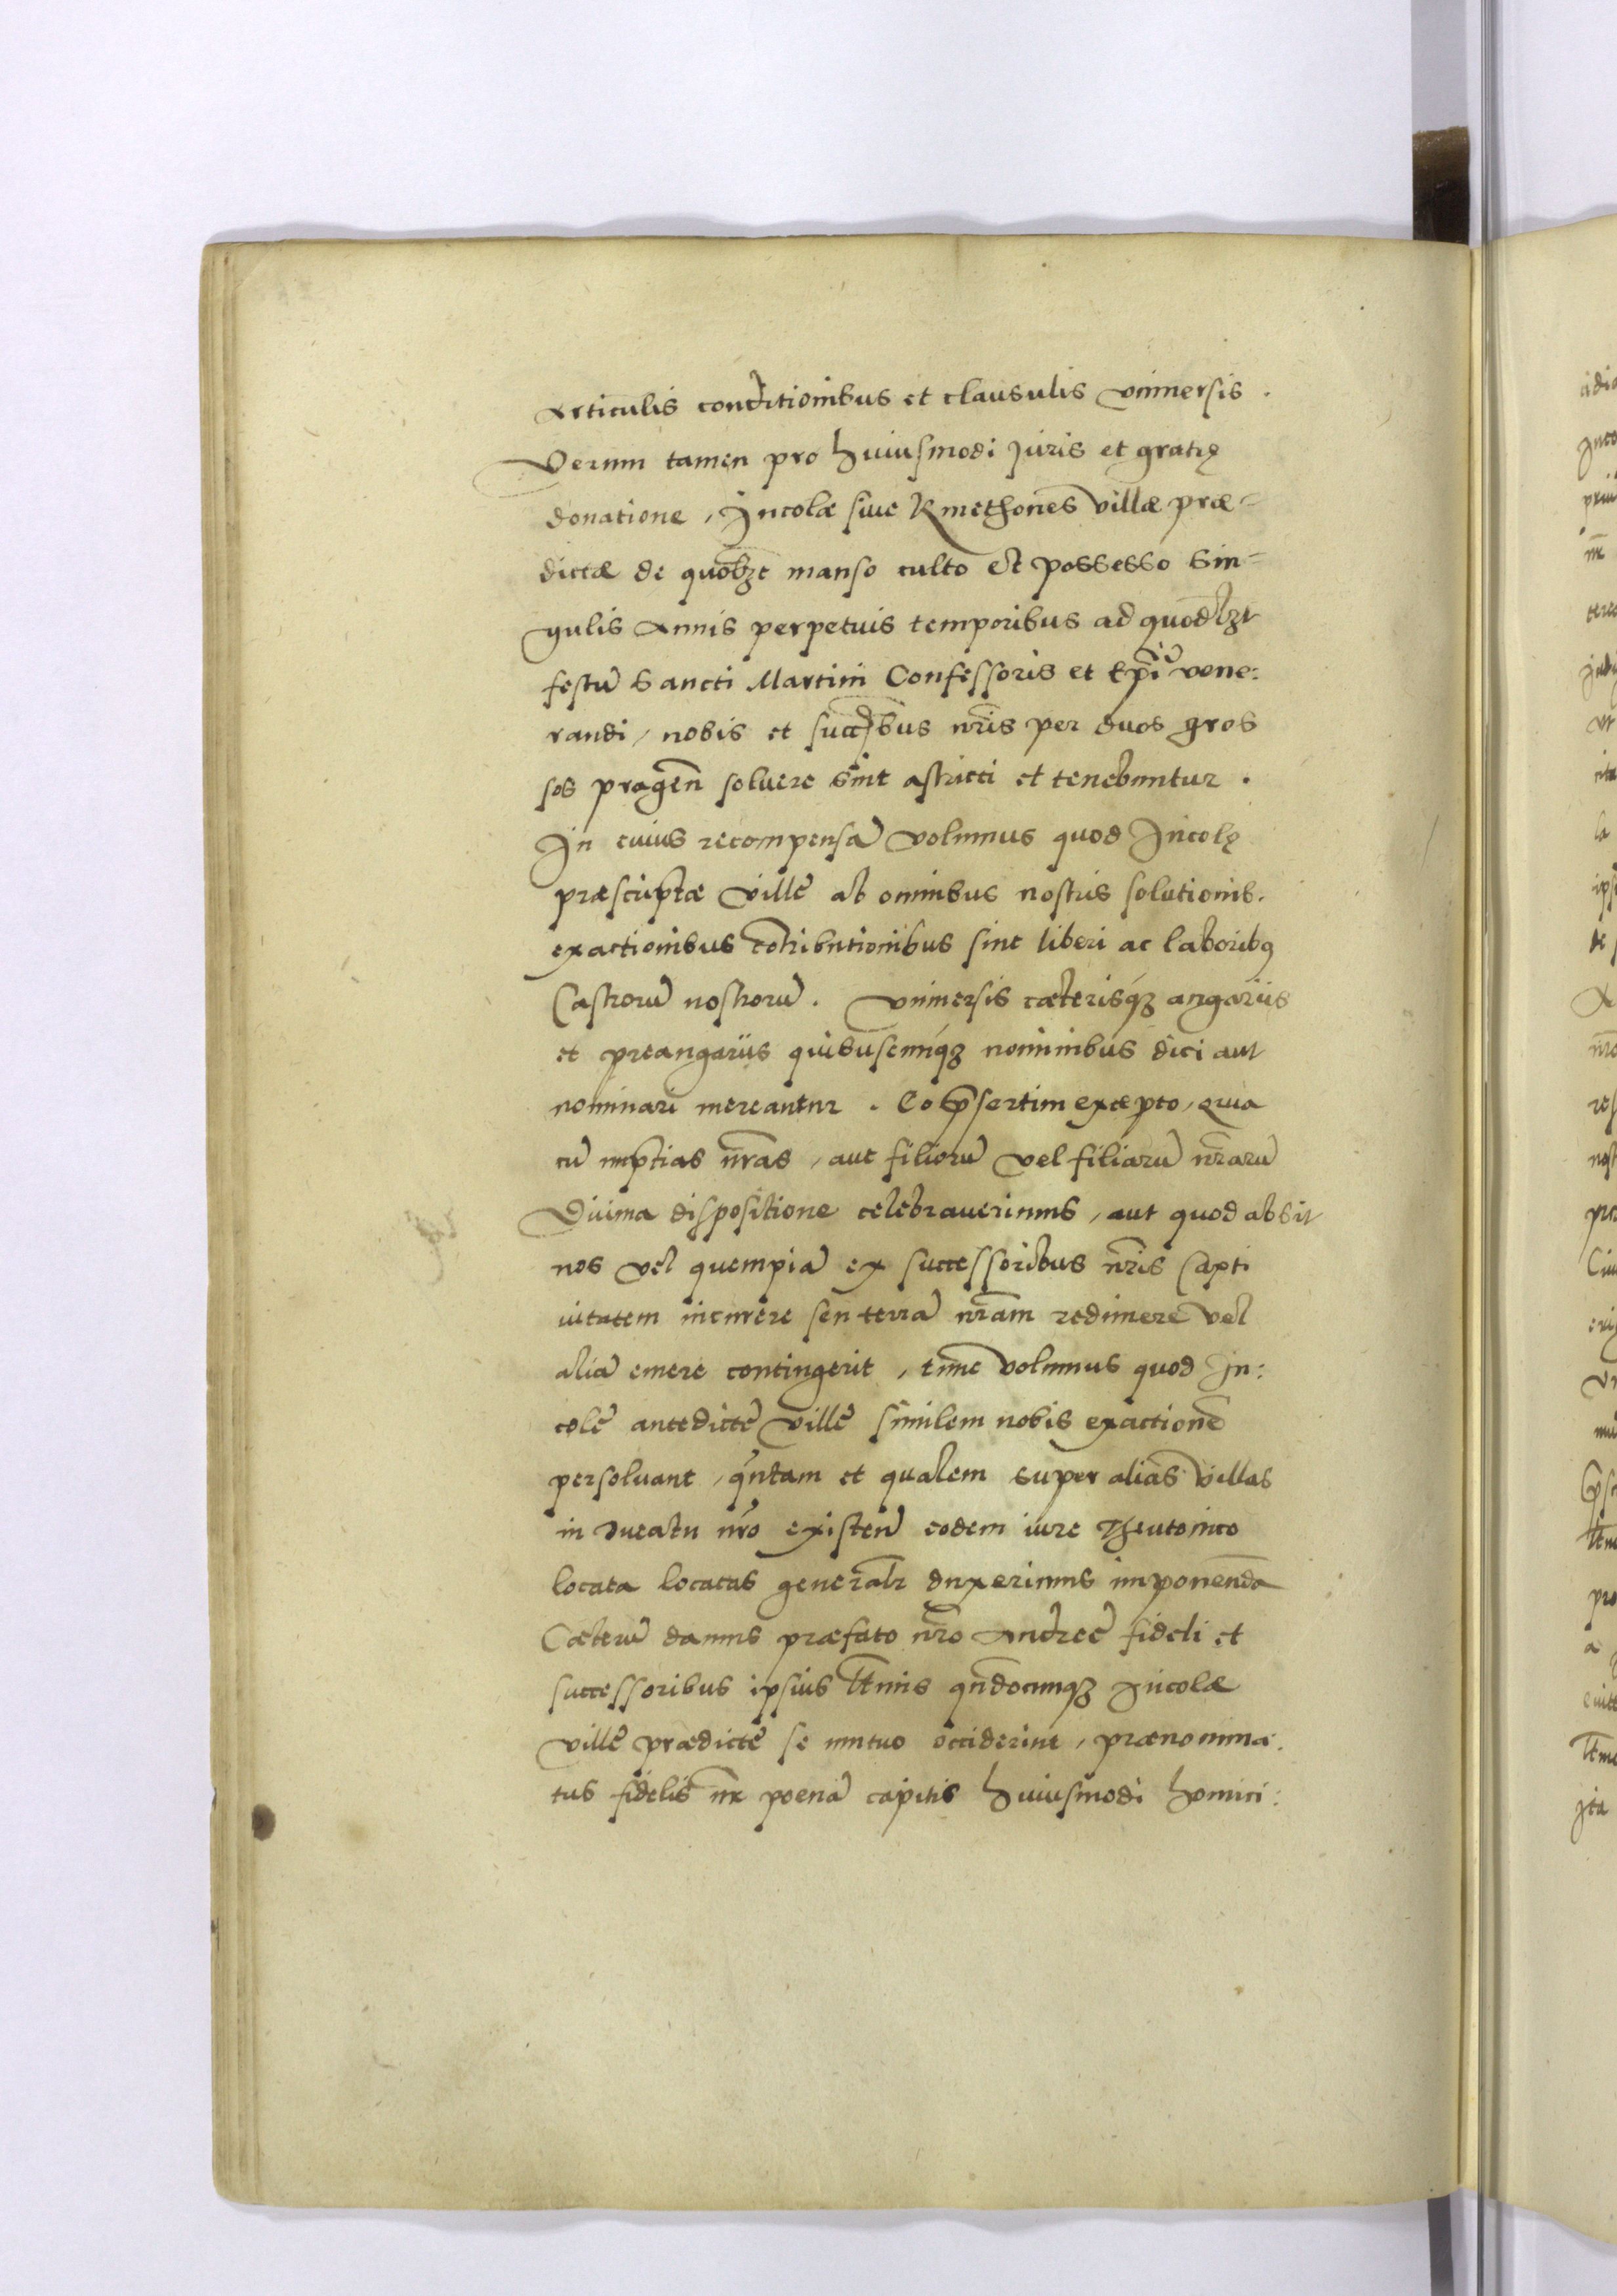 Articulis conditionibus et clausulis vniuersis.
Verum tamen pro huiusmodi Juris et gratię
donatione, Jncolæ siue Kmethones villæ præ-
dictæ de quolꝫt manso culto et possesso Sin-
gulis Annis perpetuis temporibus ad quodlꝫt
festū Sancti Martini Confessoris et Ep̄i vene:
randi, nobis et succ̄sbus nr̄is per duos gros
sos pragen̄ soluere Sint astricti et tenebuntur.
Jn cuius recompensā volumus quod Jncolę
præscriptæ villę ab omnibus nostris solutionib.
exactionibus cōtributionibus sint liberi ac laboribꝰ
Castrorū nostrorū. Vniuersis cæterisqꝫ angariis
et preangariis quibuscunqꝫ nominibus dici aut
nominari mereantur. Eo p̄sertim excepto, qua
cū nuptias nr̄as, aut filiorū vel filiarū nr̄arū
Diuina dispositione celebrauerimus, aut quod absit
nos vel quempiā ex successoribus nr̄is Capti
uitatem incurrere seu terrā nr̄am redimere vel
aliā emere contingerit, tunc volumus quod Jn:
colę antedictę villę similem nobis exactionē
persoluant, qn̄tam et qualem super alias villas
in Ducatu nr̄o existen̄ eodem iure Theutonico
locata locatas generalr̄ duxerimus imponenda
Cæterū damus præfato nr̄o Andreę fideli et
successoribus ipsius lt̄imis qn̄documqꝫ Jncolæ
villę prædictę se mutuo occiderint, prænomina:
tus fidelis nr̄ poenā capitis huiusmodi homici: